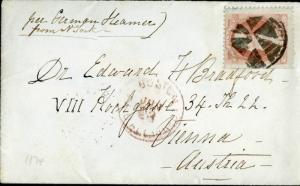 per German Steamer
from N. York
Dr Edward H Bradford
VIII Kochgasse 34. Th 22
Vienna
Austria
BOSTON
1874